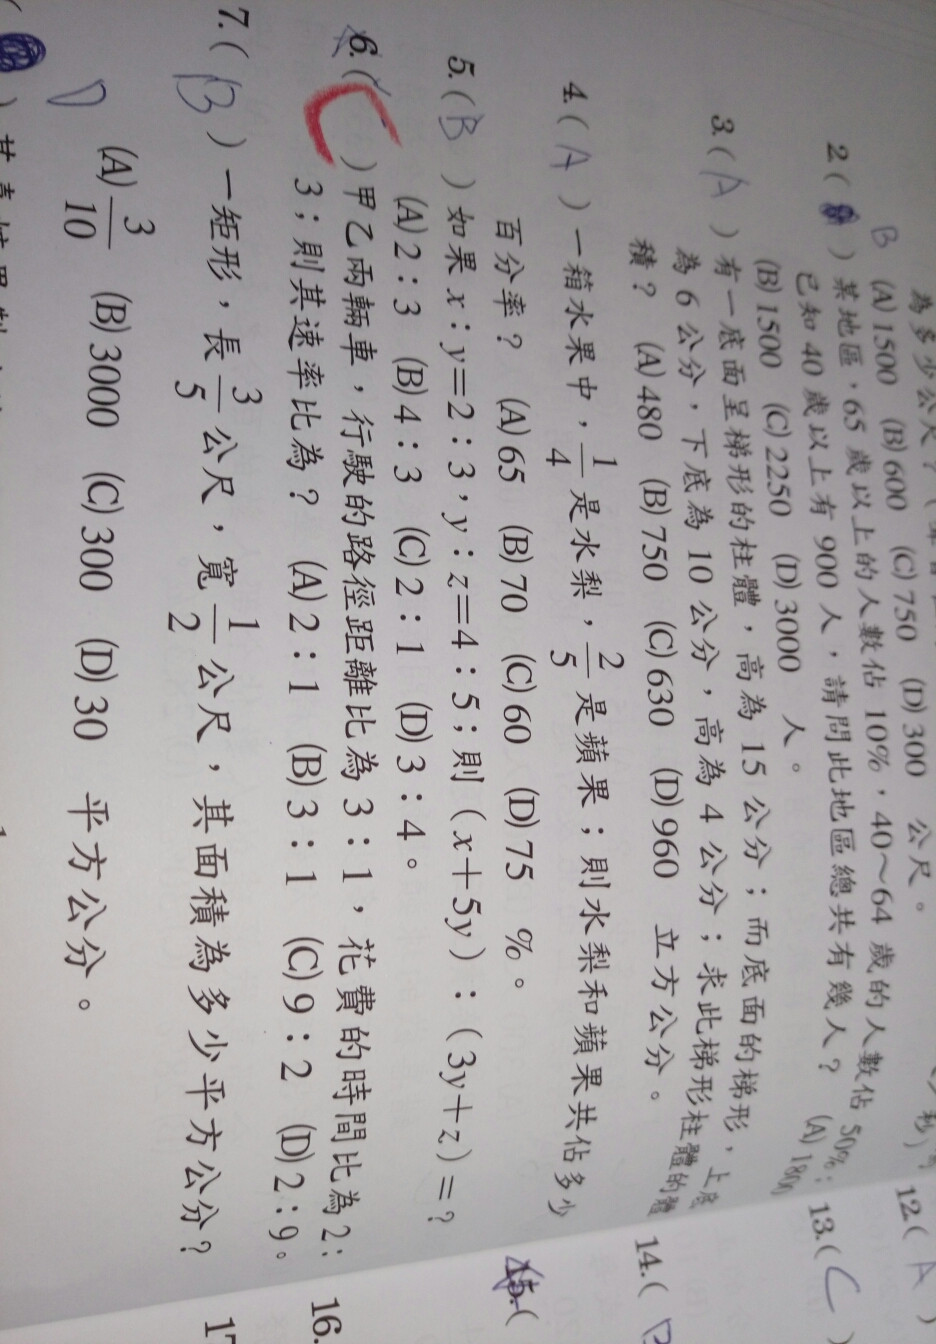 為多少公尺？
B (A)1500 (B)600 (C)750 (D)300 公尺。
2.( )某地區，65歲以上的人數佔10%，40～64歲的人數佔50%；
已知40歲以上有900人，請問此地區總共有幾人？ (A)1800
(B)1500 (C)2250 (D)3000 人。
3.(A)有一底面呈梯形的柱體，高為15公分；而底面的梯形，上底
為6公分，下底為10公分，高為4公分；求此梯形柱體的體
積？ (A)480 (B)750 (C)630 (D)960 立方公分。
4.(A)一箱水果中，1/4是水梨，2/5是蘋果；則水梨和蘋果共佔多少
百分率？ (A)65 (B)70 (C)60 (D)75 %。
5.(B)如果x：y＝2：3，y：z＝4：5；則(x＋5y)：(3y＋z)＝？
(A)2：3 (B)4：3 (C)2：1 (D)3：4。
6.(C)甲乙兩輛車，行駛的路徑距離比為3：1，花費的時間比為2：
3；則其速率比為？ (A)2：1 (B)3：1 (C)9：2 (D)2：9。
7.(B)一矩形，長3/5公尺，寬1/2公尺，其面積為多少平方公分？
D (A)3/10 (B)3000 (C)300 (D)30 平方公分。
秒)
12.(A)
13.(C)
14.(
15.(
16.